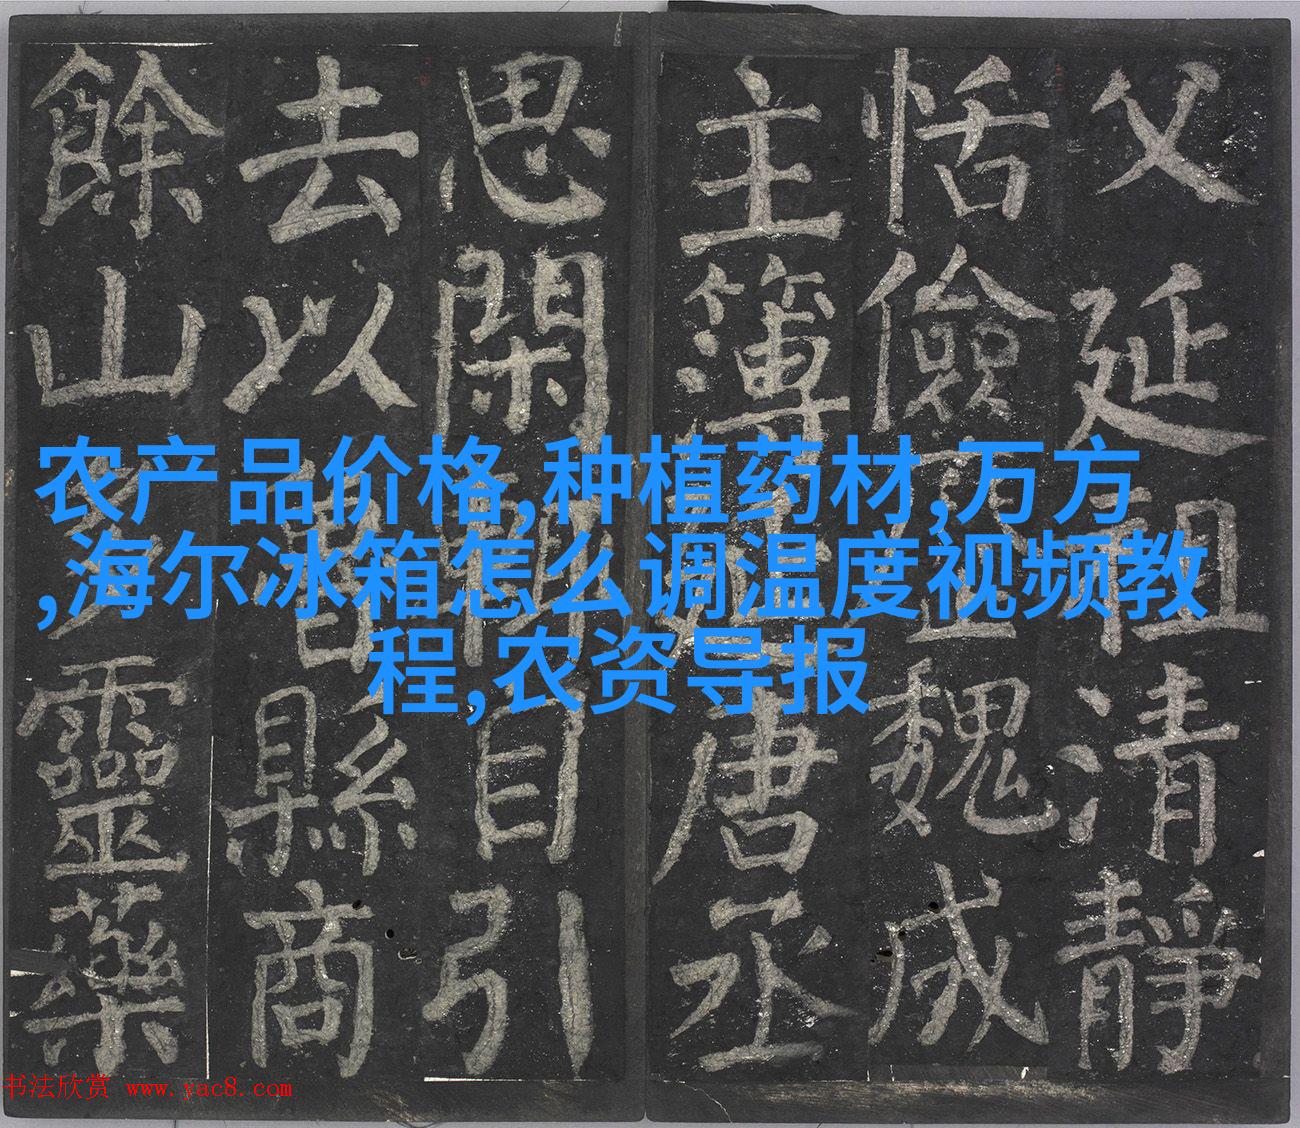 农产品价格,种植药材,万方
,海尔冰箱怎么调温度视频教
程,农资导报
父延祖清靜
恬儉歷魏成
主簿延唐丞
思閑輒自引
去以魯縣商
餘山多靈藥
书法欣赏 www.yac8.com